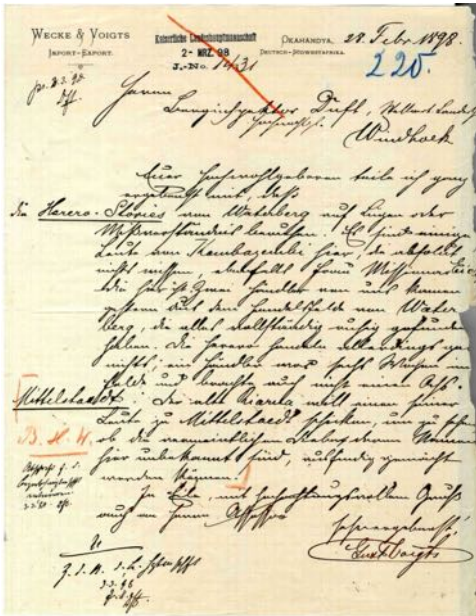 WECKE & VOIGTS
IMPORT-EXPORT.
Kaiserliche Landeshauptmannschaft
2-MRZ.98
J.-No. 1431
OKAHANDYA, 28. Febr 1898.
DEUTSCH-SÜDWESTAFRIKA.
220.
Herrn
Berginspektor Duft, Stellvert. Landesh
Hochwohlgb.
Windhoek
Euer Hochwohlgeboren teile ich ganz
ergebenst mit, daß
die Herero-Stories vom Waterberg auf Lügen oder
Mißverständnis beruhen. Es sind einige
Leute von Kambazembi hier, die absolut
nichts wissen, ebenfalls
Zwei Händler von uns kamen
gestern aus dem Handelsfelde von Water-
berg, die alles vollständig ruhig gefunden
haben. Die Herero handeln allerdings gar
nichts; ein Händler war sechs Wochen im
Felde und brachte auch nicht einen Ochs.
Mittelstaedt: Der alte Riarua will einen seiner
Leute zu Mittelstaedt schicken, um zu
ob die vermeintlichen deren Namen
hier unbekannt sind, ausfindig gemacht
werden können.
In Eile, mit hochachtungsvollem Gruß
auch an Herrn Assessor
sehr ergebenst
Gust Voigts
B. H. W.